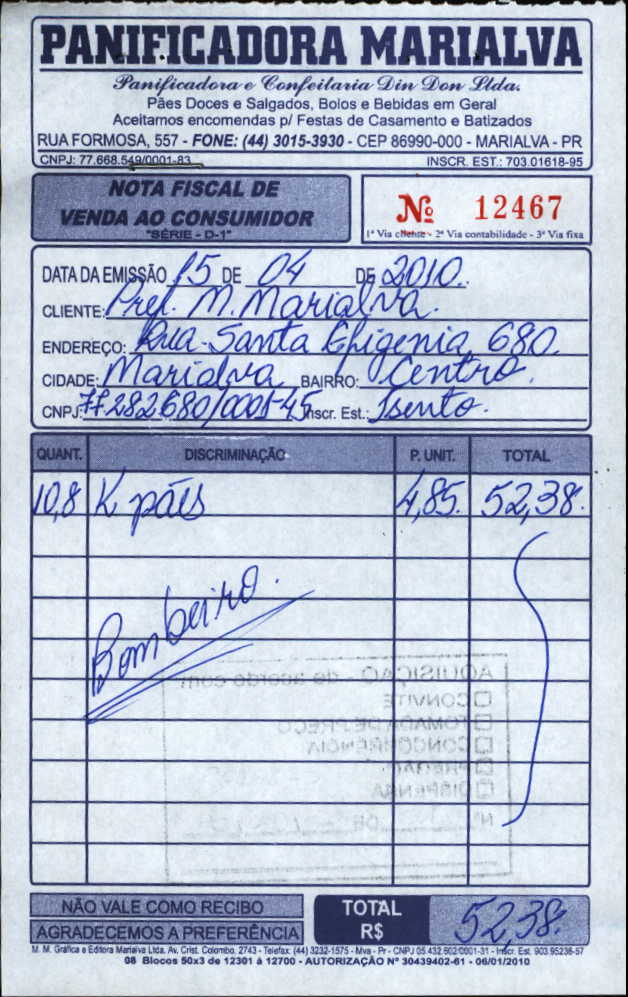 PANIFICADORA MARIALVA
Panificadora e Confeitaria Din Don Ltda.
Pães Doces e Salgados, Bolos e Bebidas em Geral
Aceitamos encomendas p/ Festas de Casamento e Batizados
RUA FORMOSA, 557 - FONE: (44) 3015-3930 - CEP 86990-000 - MARIALVA - PR
CNPJ: 77.668.549/0001-83 INSCR. EST.: 703.01618-95
NOTA FISCAL DE
VENDA AO CONSUMIDOR
"SÉRIE - D-1"
Nº 12467
1ª Via cliente - 2ª Via contabilidade - 3ª Via fixa
DATA DA EMISSÃO 15 DE 04 DE 2010.
CLIENTE: Pref. M. Marialva.
ENDEREÇO: Rua Santa Efigenia 680.
CIDADE: Marialva BAIRRO: Centro.
CNPJ: 77282680/0001-45 Inscr. Est.: Isento.
QUANT. DISCRIMINAÇÃO P. UNIT. TOTAL
10,8 K pães 4,85. 52,38.
Bombeiro.
AQUISIÇÃO - de acordo com:
CONVITE
TOMADA DE PREÇO
CONCORRÊNCIA
PREGÃO
DISPENSA
Nº DE
NÃO VALE COMO RECIBO
AGRADECEMOS A PREFERÊNCIA
TOTAL
R$ 52,38.
M. M. Gráfica e Editora Marialva Ltda. Av. Crist. Colombo, 2743 - Telefax: (44) 3232-1575 - Mva - Pr - CNPJ 05.432.602/0001-31 - Inscr. Est. 903.95236-57
08 Blocos 50x3 de 12301 à 12700 - AUTORIZAÇÃO Nº 30439402-61 - 06/01/2010